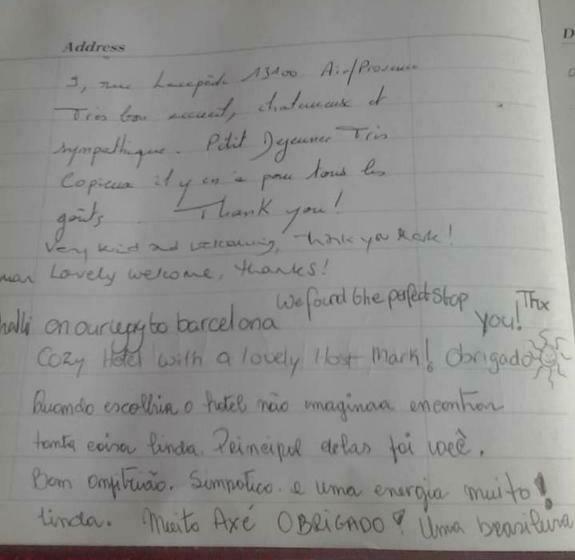 Address
D
5, rue Lacepède 13100 Aix/Provence
Très bon accueil, chaleureux et
sympathique. Petit Dejeuner Très
Copieux il y en a pour tous les
goûts Thank you!
Very kind and welcoming, Thank you Mark!
Lovely welcome, thanks!
We found the perfect stop
on our way to barcelona you! Thx
Cozy Hotel with a lovely Host Mark! Obrigado
Quando escolhia o hotel não imaginava encontrar
tanta coisa linda. Principal delas foi você.
Bom anfitrião. Simpatico. e uma energia muito!
linda. Muito Axé OBRIGADO! Uma brasileira